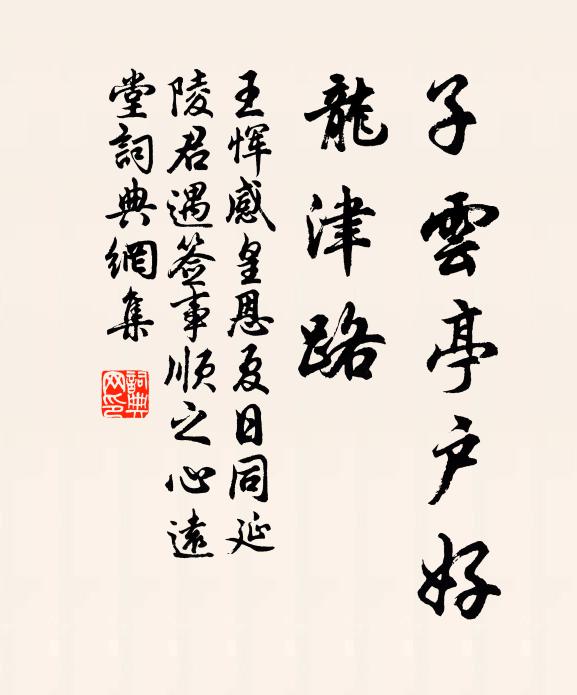 子雲亭户好
龍津路
王惲感皇恩夏日同延
陵君遇签事順之心遠
堂詞典網集
詞典
网印